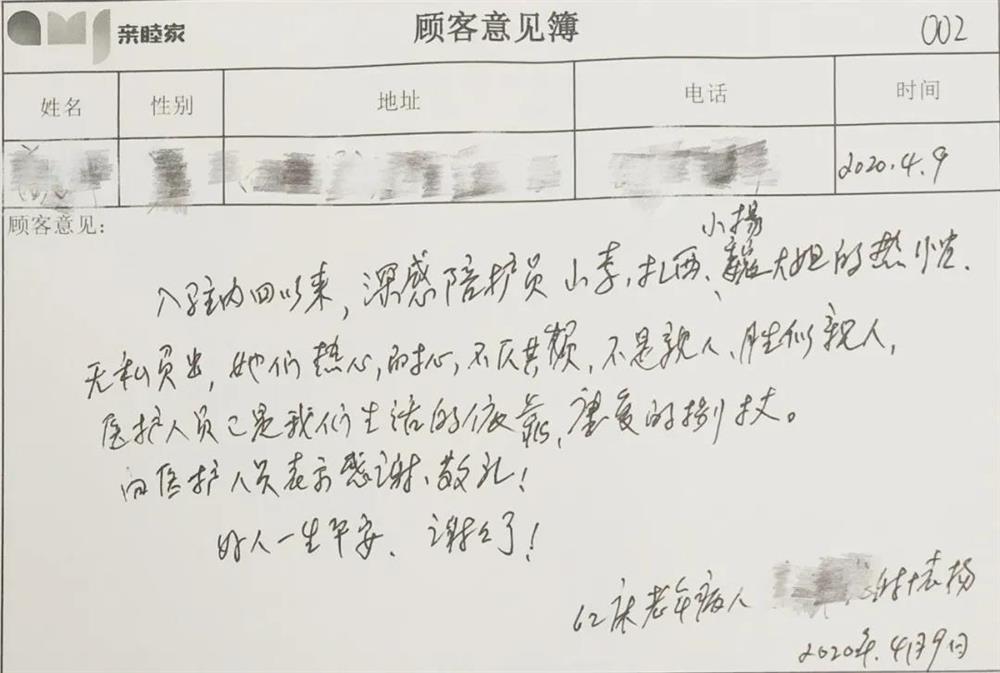 亲睦家
顾客意见簿
002
姓名 性别 地址 电话 时间
2020.4.9
顾客意见：
小杨
入驻内四以来，深感陪护员小李，扎西、大姐的热忱、
无私，她们热心，耐心，不厌其烦，不是亲人、胜似亲人，
医护人员已是我们生活的依靠，康复的拐杖。
向医护人员表示感谢、敬礼！
好人一生平安、谢谢了！
62床老年病人
2020年.4月9日